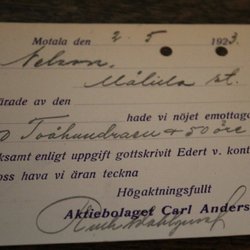 Motala den 2. 5 1923
Nelson.
Målilla st.
ärade av den
hade vi nöjet emottaga
Tvåhundraen & 50 öre
ksamt enligt uppgift gottskrivit Edert v. kont
oss hava vi äran teckna
Högaktningsfullt
Aktiebolaget Carl Anders